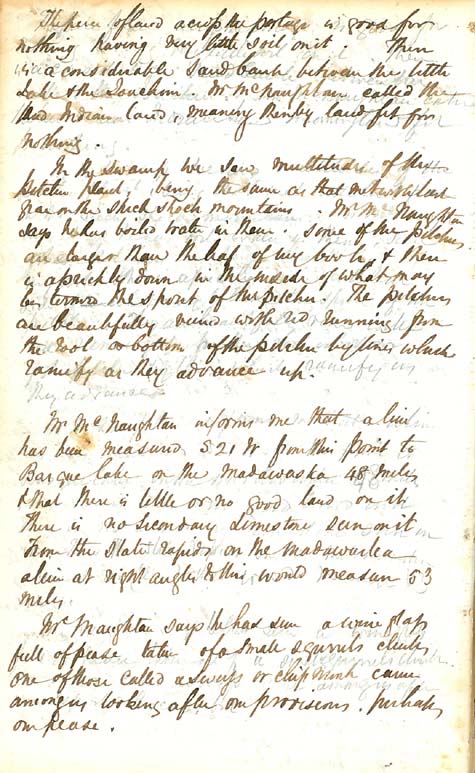 The piece of land across the portage is good for
nothing having very little soil on it. There
is a considerable sand bank between the little
Lake & the Bonchere. Mr McNaughtan called the
land Indian land, meaning thereby land fit for
nothing.
In the swamp we saw multitudes of the
pitcher plant, being the same as that met with last
year on the Shick Shock mountains. Mr McNaughtan
says he has boiled water in them. Some of the pitchers
are larger than the half of my book & there
is a prickly down in the inside of what may
be termed the spout of the pitcher. The pitchers
are beautifully veined with red running from
the root or bottom of the pitcher by lines which
ramify as they advance up.
Mr McNaughtan informs me that a line
has been measured S 21 W from this point to
Barque lake on the Madawaska 48 miles
& that there is little or no good land on it.
There is no secondary Limestone seen on it
From the Slate rapids on the Madawaska
a line at right angles to this would measure 53
miles.
Mr Naughtan says he has seen a wine glass
full of pease taken of a small squirrels cheeks
one of those called a swiss or chip monk came
amongus looking after our provisions, perhaps
our pease.